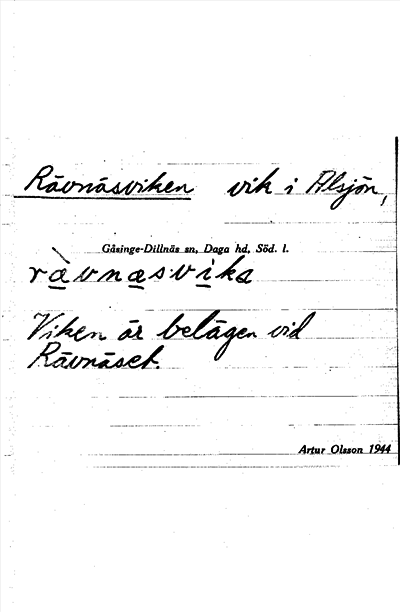 Rävnäsviken vik i Alsjön,
Gåsinge-Dillnäs sn, Daga hd, Söd. l.
rà̱vna̱svi̱ka
Viken är belägen vid
Rävnäset.
Artur Olsson 1944